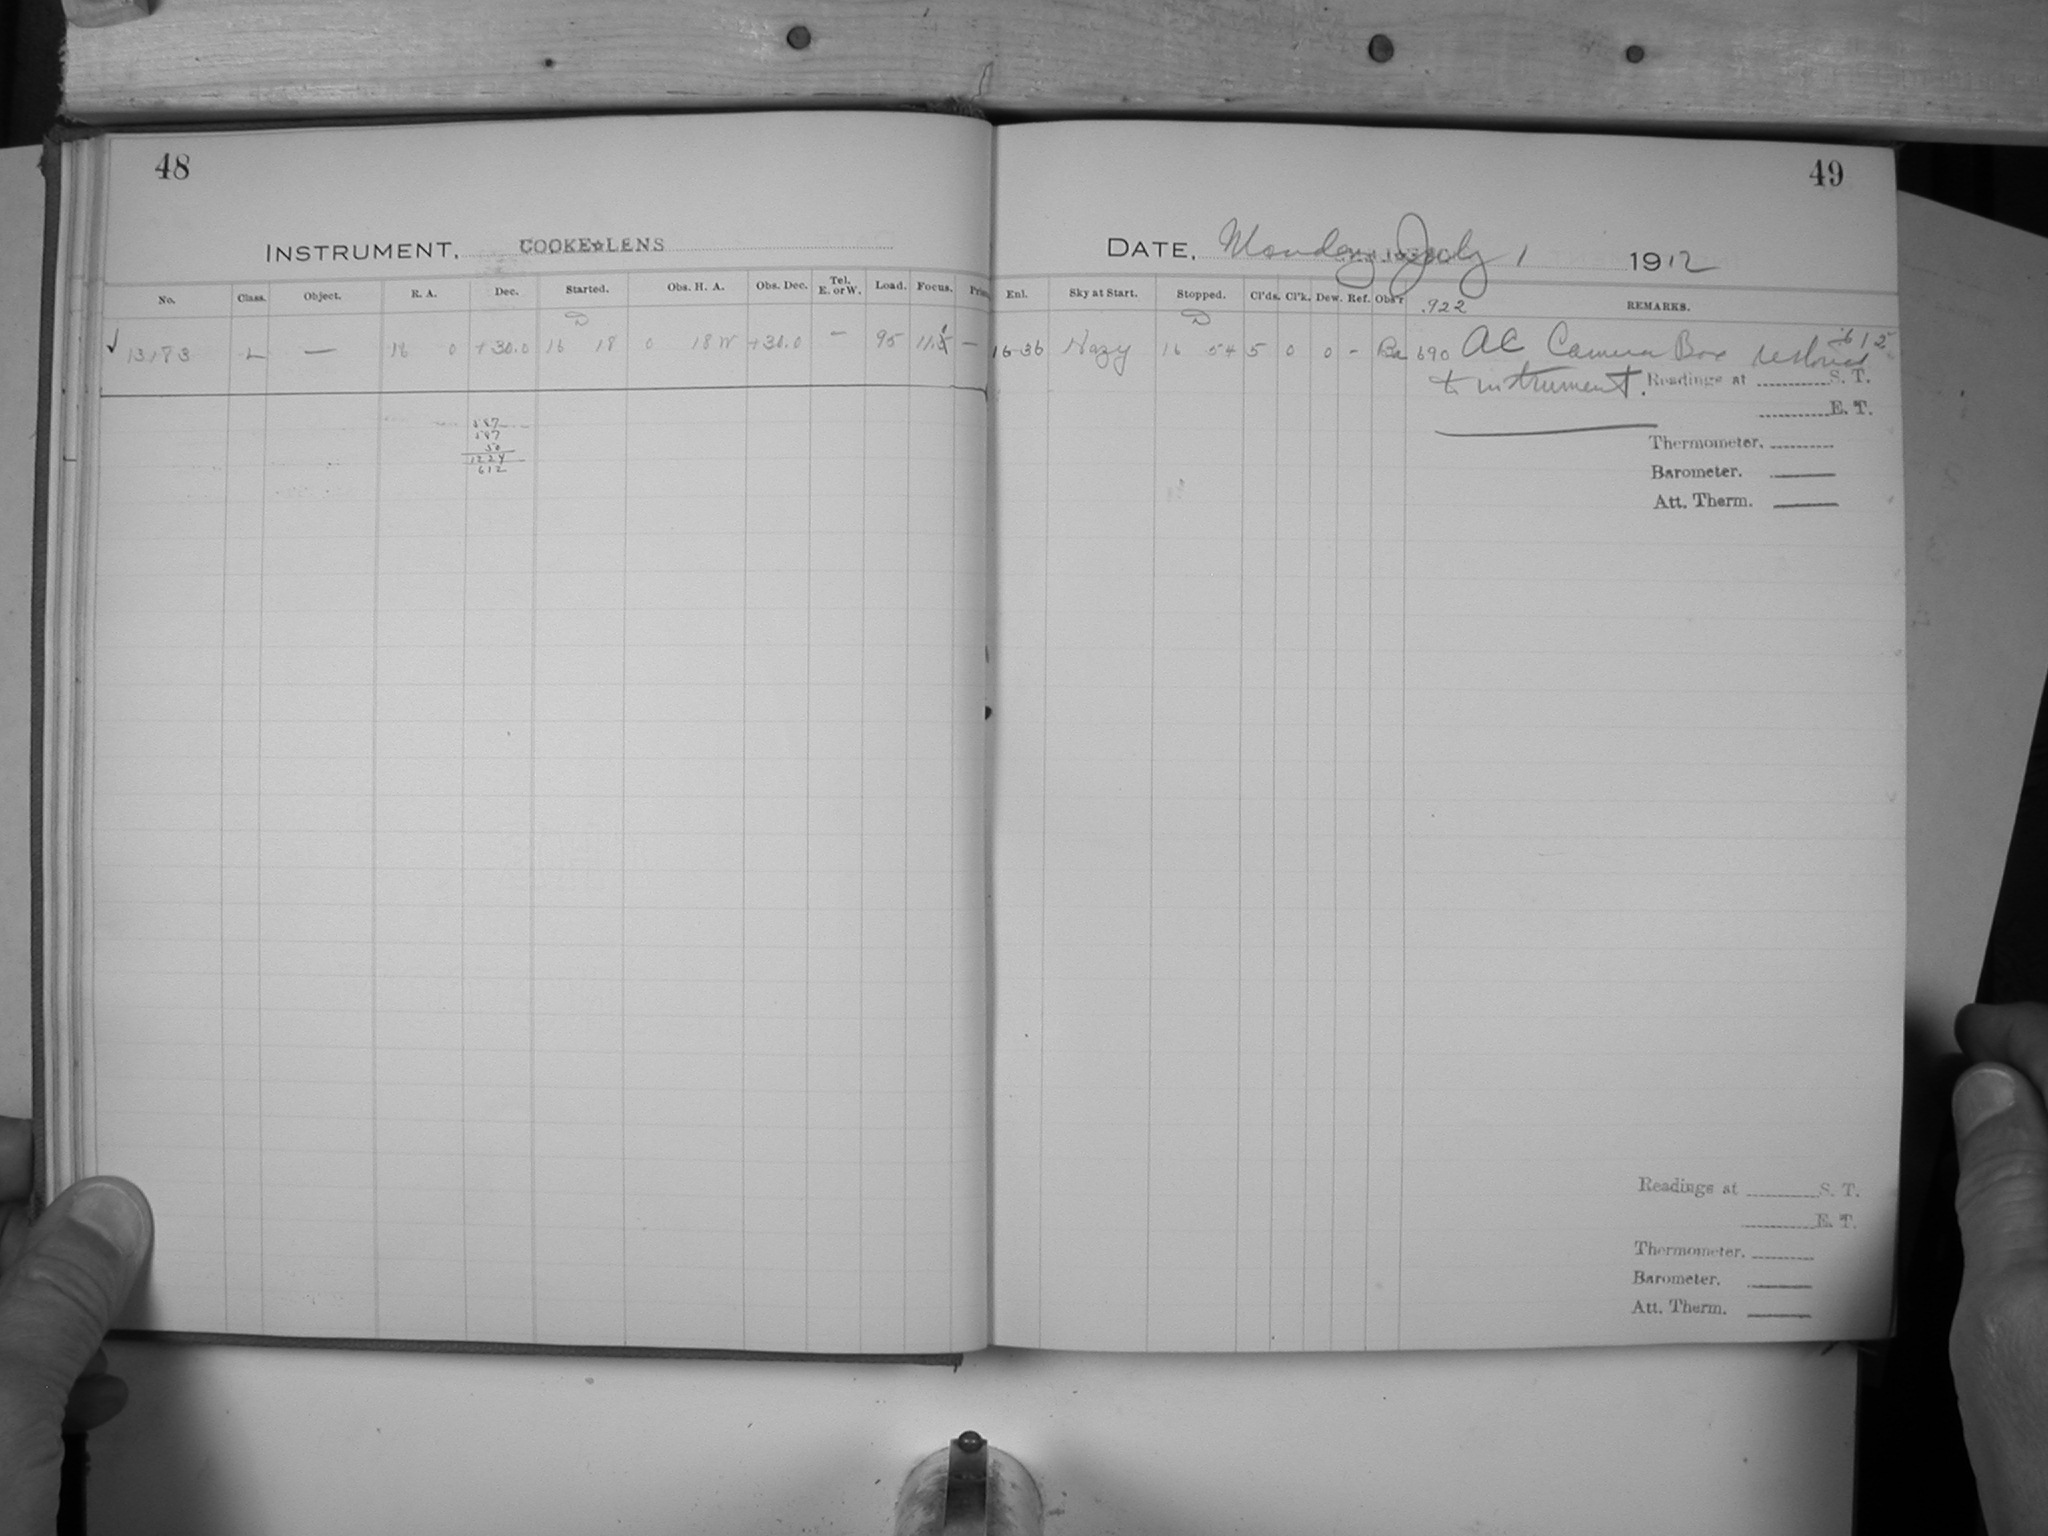 48
INSTRUMENT, COOKE☆LENS
No. Class. Object. R. A. Dec. Started. Obs. H. A. Obs. Dec. Tel. E. or W. Load. Focus.
✓ 13173 L — 16 0 +30.0 16 18 0 18 W +30.0 — 95 —
50
1224
612
49
DATE, Monday July 1 1912
Enl. Sky at Start. Stopped. Cl'ds. Cl'k. Dew. Ref. Obs'r .922 REMARKS.
16-36 Hazy 16 54 5 0 0 - Ba 690 AC Camera Box restored 612
to instrument. Readings at S. T.
E. T.
Thermometer.
Barometer.
Att. Therm.
Readings at S. T.
E. T.
Thermometer.
Barometer.
Att. Therm.